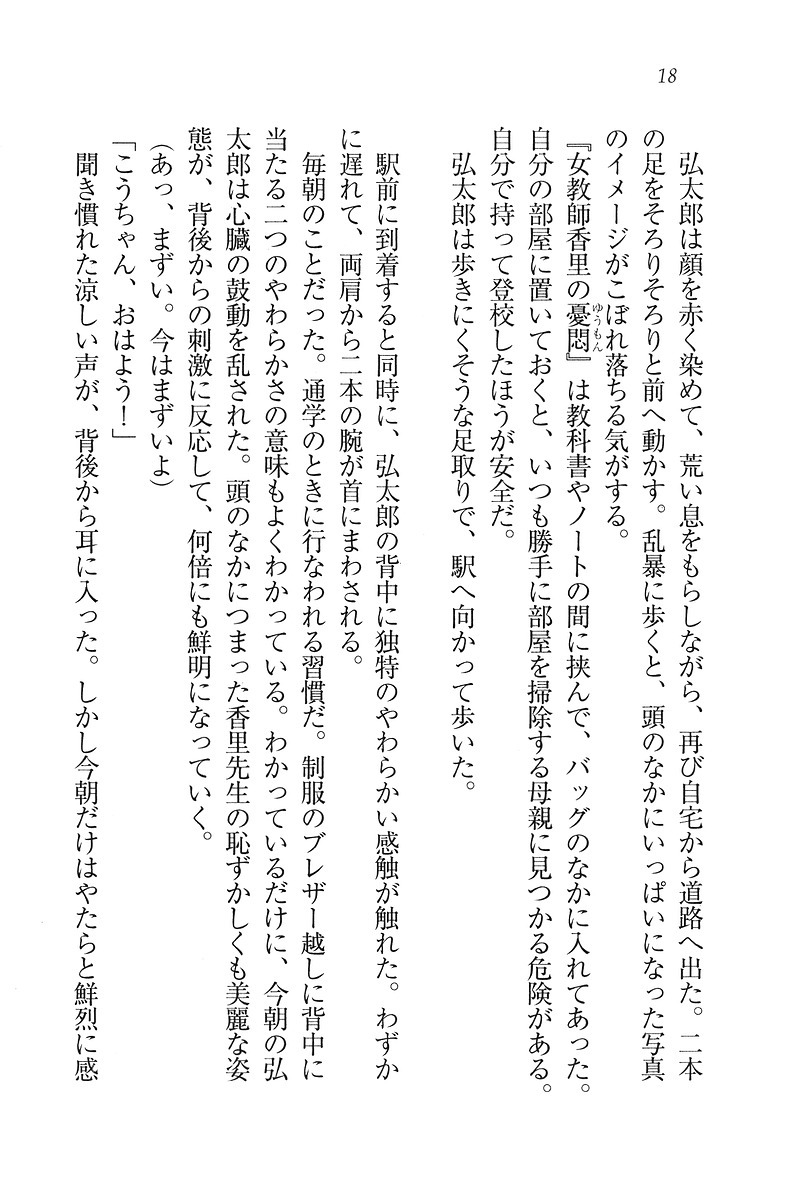 18
弘太郎は顔を赤く染めて、荒い息をもらしながら、再び自宅から道路へ出た。二本
の足をそろりそろりと前へ動かす。乱暴に歩くと、頭のなかにいっぱいになった写真
のイメージがこぼれ落ちる気がする。
『女教師香里の憂悶』は教科書やノートの間に挟んで、バッグのなかに入れてあった。
ゆうもん
自分の部屋に置いておくと、いつも勝手に部屋を掃除する母親に見つかる危険がある。
自分で持って登校したほうが安全だ。
弘太郎は歩きにくそうな足取りで、駅へ向かって歩いた。
駅前に到着すると同時に、弘太郎の背中に独特のやわらかい感触が触れた。わずか
に遅れて、両肩から二本の腕が首にまわされる。
毎朝のことだった。通学のときに行なわれる習慣だ。制服のブレザー越しに背中に
当たる二つのやわらかさの意味もよくわかっている。わかっているだけに、今朝の弘
太郎は心臓の鼓動を乱された。頭のなかにつまった香里先生の恥ずかしくも美麗な姿
態が、背後からの刺激に反応して、何倍にも鮮明になっていく。
（あっ、まずい。今はまずいよ）
「こうちゃん、おはよう！」
聞き慣れた涼しい声が、背後から耳に入った。しかし今朝だけはやたらと鮮烈に感